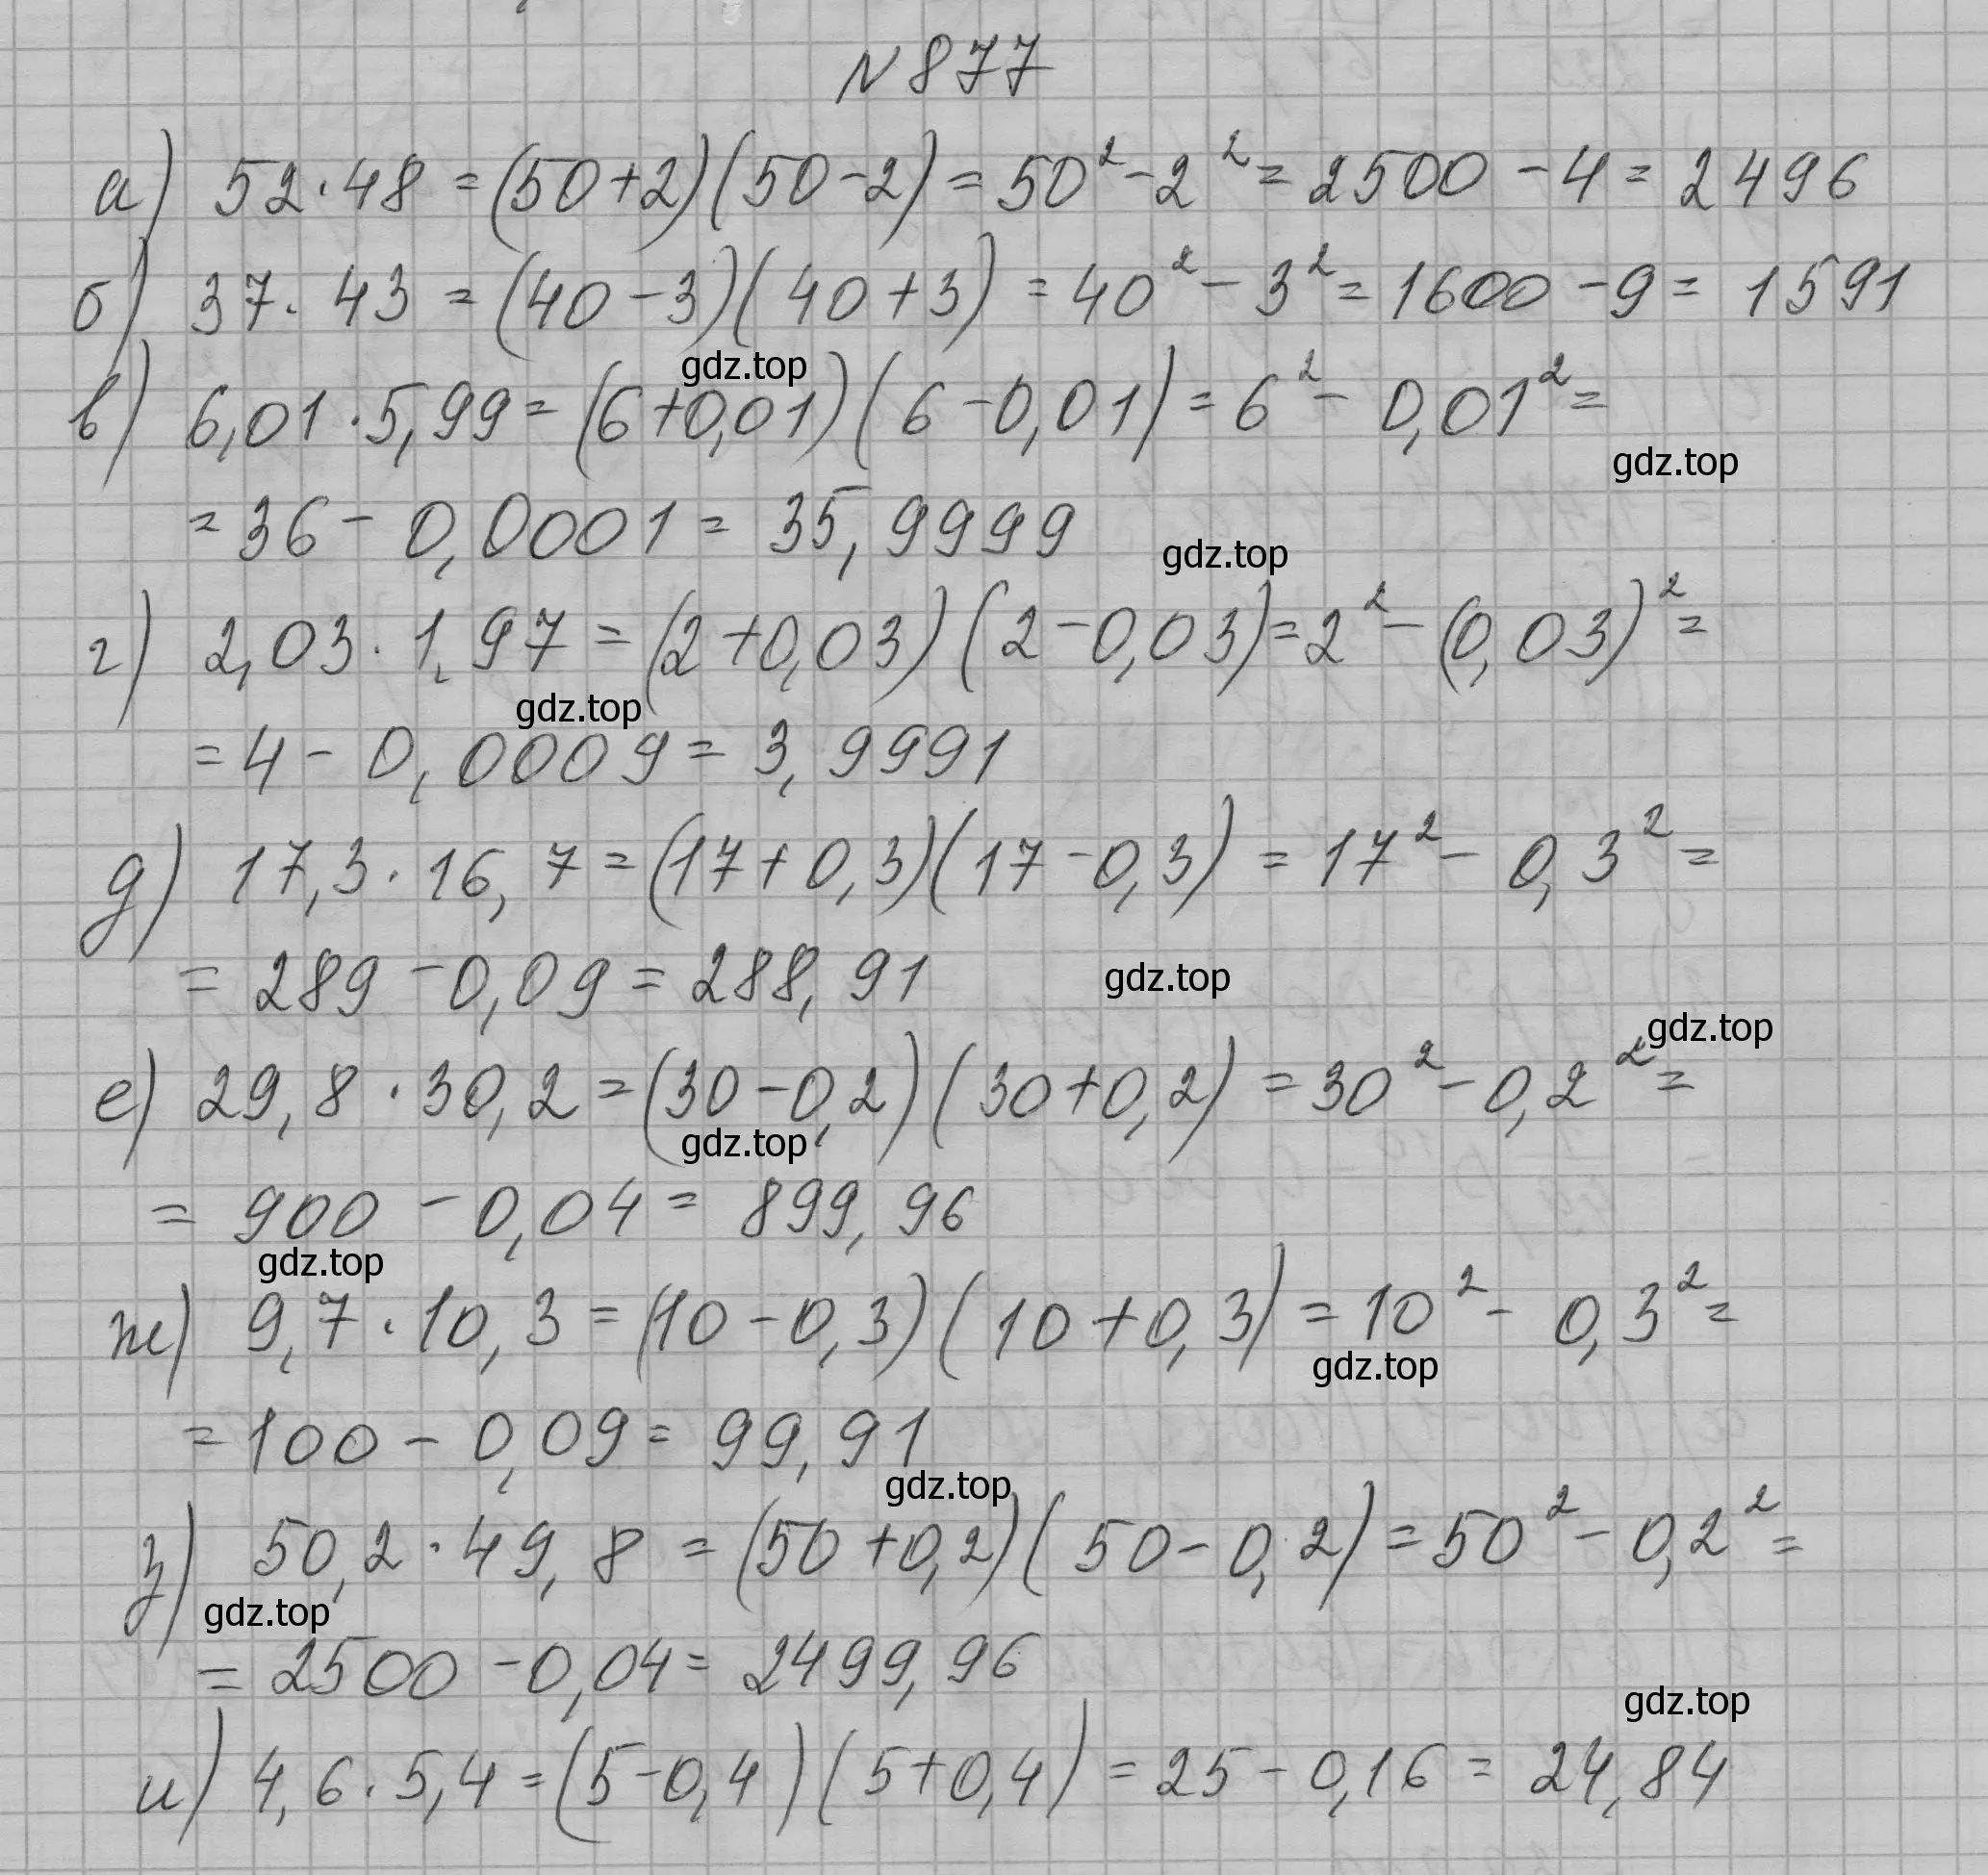 N 877
а) 52·48 = (50+2)(50-2) = 50² - 2² = 2500 - 4 = 2496
б) 37·43 = (40-3)(40+3) = 40² - 3² = 1600 - 9 = 1591
gdz.top
в) 6,01·5,99 = (6+0,01)(6-0,01) = 6² - 0,01² =
gdz.top
= 36 - 0,0001 = 35,9999
gdz.top
г) 2,03·1,97 = (2+0,03)(2-0,03) = 2² - (0,03)² =
gdz.top
= 4 - 0,0009 = 3,9991
д) 17,3·16,7 = (17+0,3)(17-0,3) = 17² - 0,3² =
= 289 - 0,09 = 288,91
gdz.top
gdz.top
е) 29,8·30,2 = (30-0,2)(30+0,2) = 30² - 0,2² =
gdz.top
= 900 - 0,04 = 899,96
gdz.top
ж) 9,7·10,3 = (10-0,3)(10+0,3) = 10² - 0,3² =
gdz.top
= 100 - 0,09 = 99,91
gdz.top
з) 50,2·49,8 = (50+0,2)(50-0,2) = 50² - 0,2² =
gdz.top
= 2500 - 0,04 = 2499,96
gdz.top
и) 4,6·5,4 = (5-0,4)(5+0,4) = 25 - 0,16 = 24,84